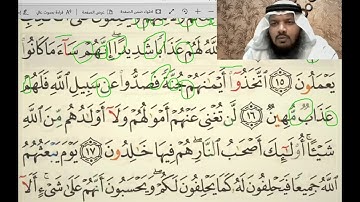 قراءة بصوت عالٍ
ٱللَّهُ لَهُمْ عَذَابًا شَدِيدًا ۖ إِنَّهُمْ سَآءَ مَا كَانُوا۟
يَعْمَلُونَ ١٥ ٱتَّخَذُوٓا۟ أَيْمَٰنَهُمْ جُنَّةً فَصَدُّوا۟ عَن سَبِيلِ ٱللَّهِ فَلَهُمْ
عَذَابٌ مُّهِينٌ ١٦ لَّن تُغْنِىَ عَنْهُمْ أَمْوَٰلُهُمْ وَلَآ أَوْلَٰدُهُم مِّنَ ٱللَّهِ
شَيْـًٔا ۚ أُو۟لَٰٓئِكَ أَصْحَٰبُ ٱلنَّارِ ۖ هُمْ فِيهَا خَٰلِدُونَ ١٧ يَوْمَ يَبْعَثُهُمُ
ٱللَّهُ جَمِيعًا فَيَحْلِفُونَ لَهُۥ كَمَا يَحْلِفُونَ لَكُمْ ۖ وَيَحْسَبُونَ أَنَّهُمْ عَلَىٰ شَىْءٍ ۚ أَلَآ